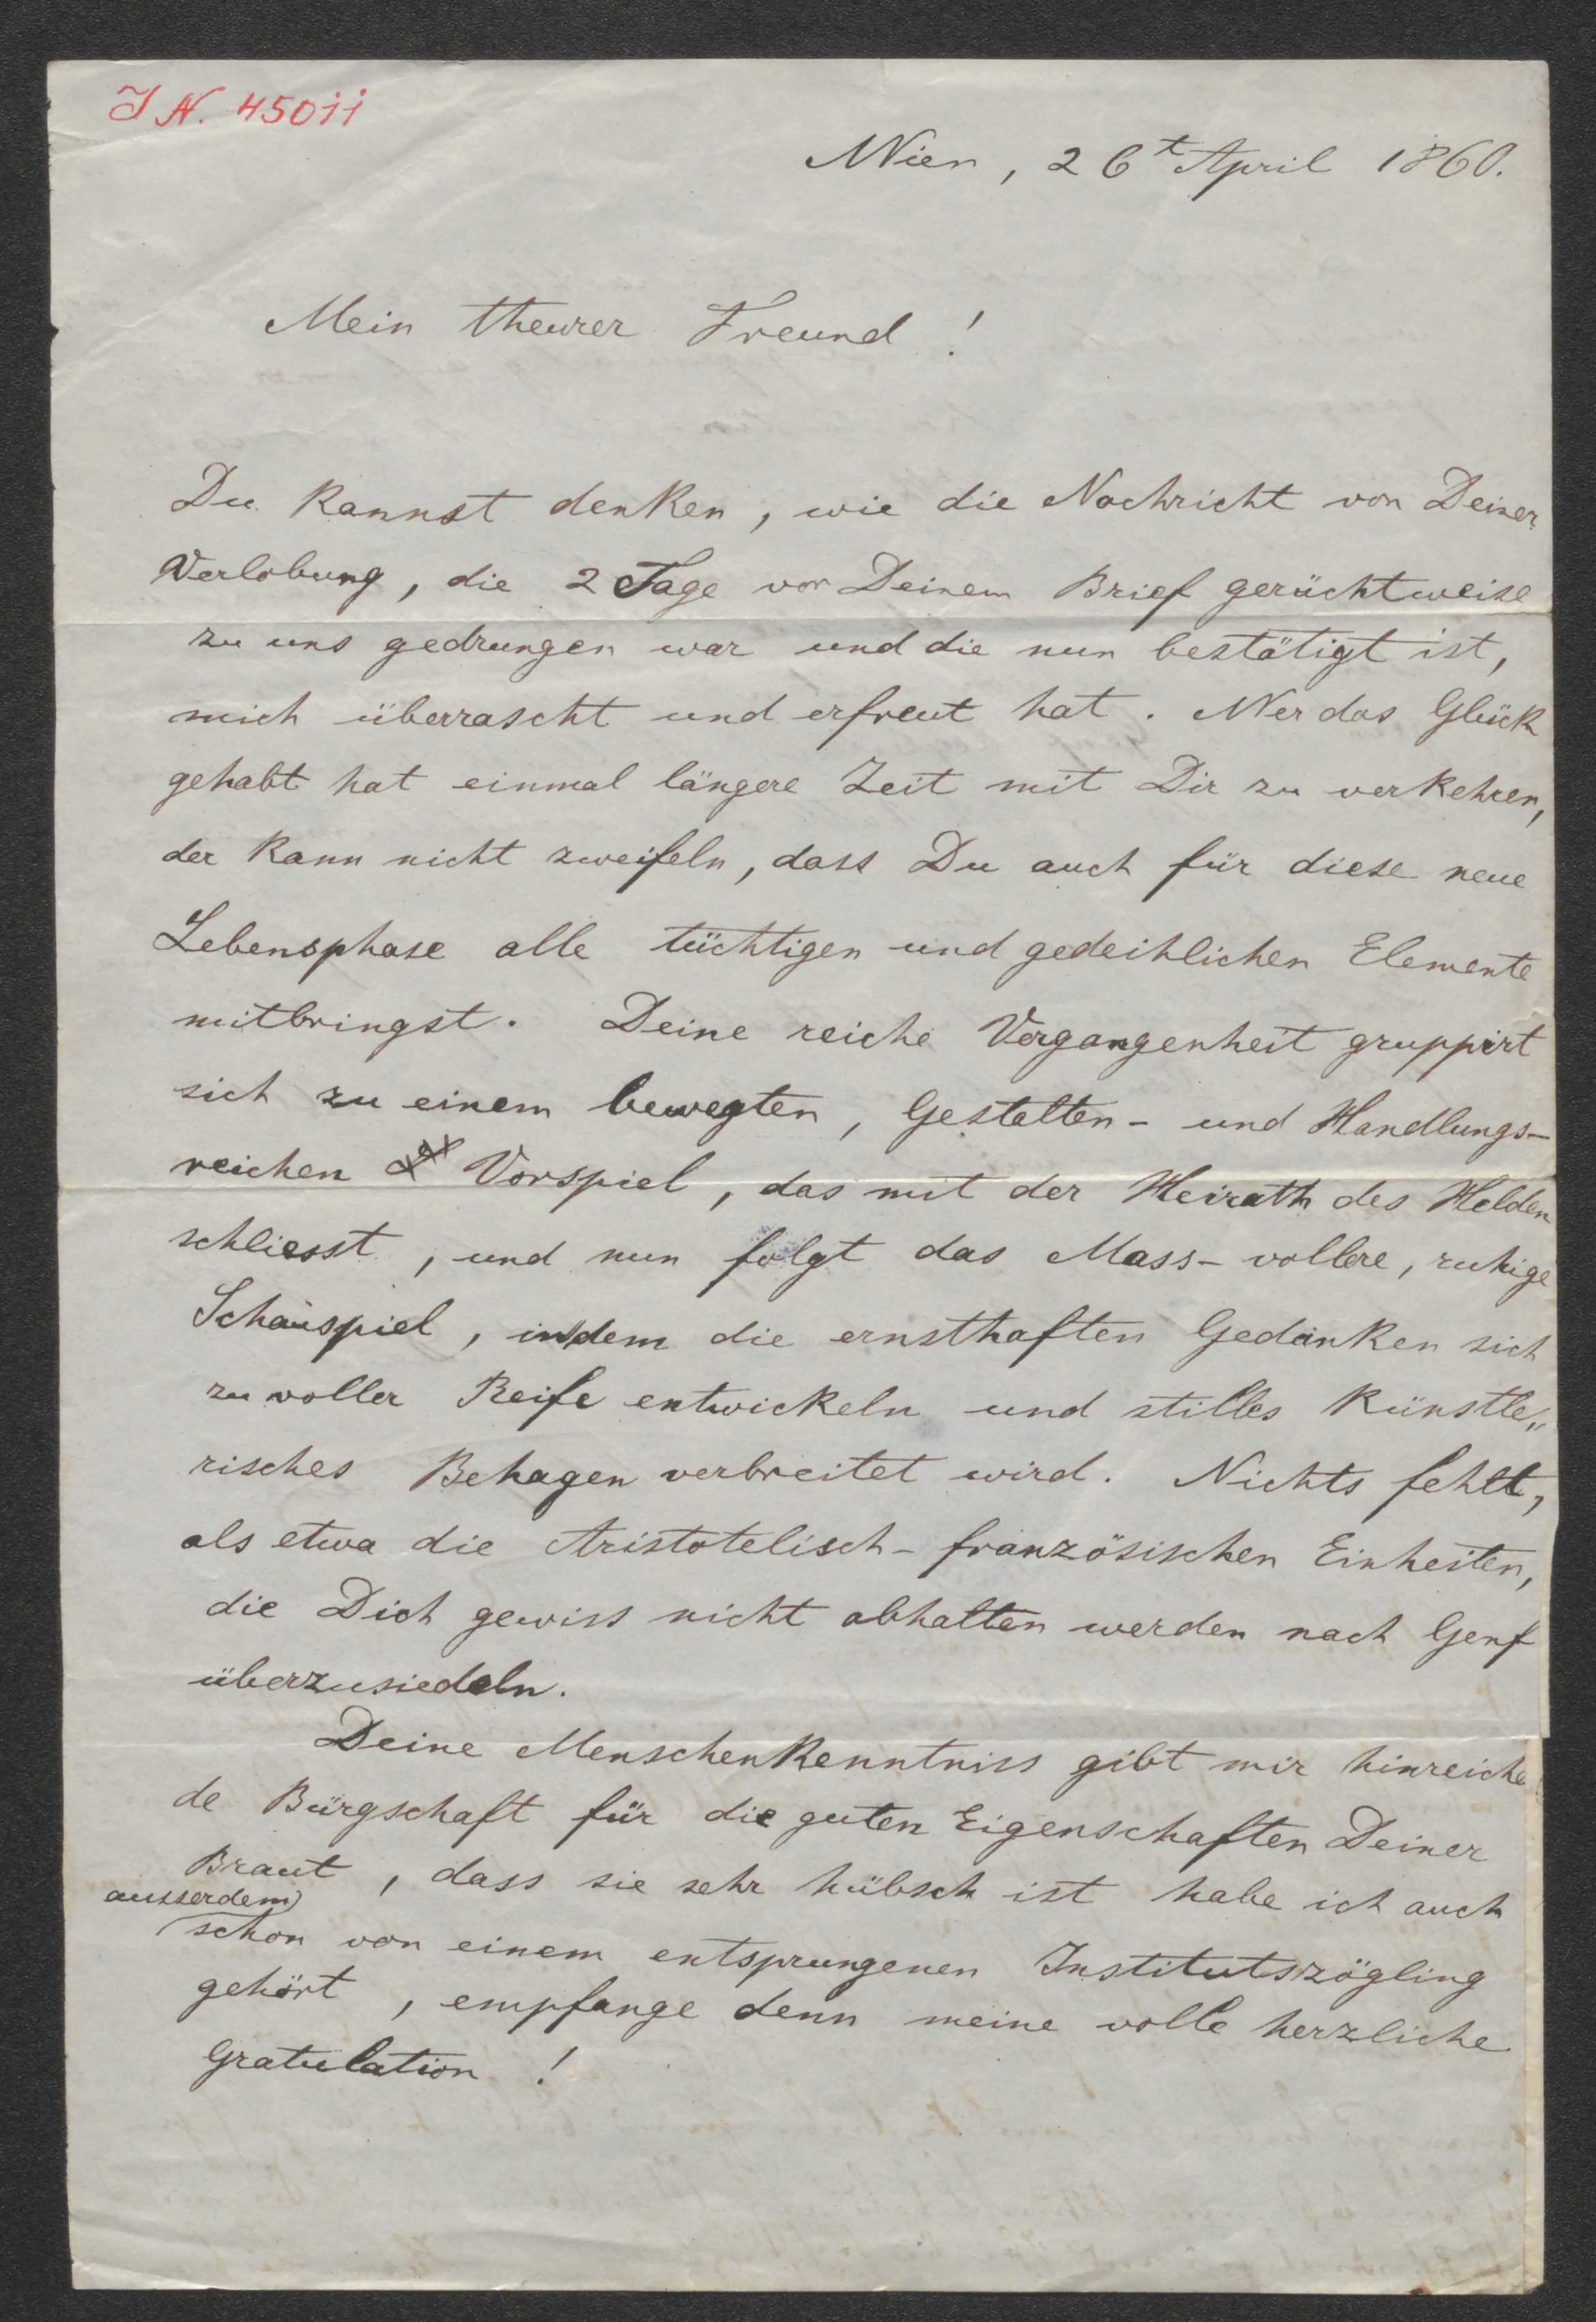 I N. 45011
Wien, 26t April 1860.
Mein theurer Freund!
Du kannst denken, wie die Nachricht von Deiner
Verlobung, die 2 Tage vor Deinem Brief gerüchtweise
zu uns gedrungen war und die nun bestätigt ist,
mich überrascht und erfreut hat. Wer das Glück
gehabt hat einmal längere Zeit mit Dir zu verkehren,
der kann nicht zweifeln, dass Du auch für diese neue
Lebensphase alle tüchtigen und gedeihlichen Elemente
mitbringst. Deine reiche Vergangenheit gruppirt
sich zu einem bewegten, Gestalten- und Handlungs-
reichen Vorspiel, das mit der Heirath des Helden
schliesst, und nun folgt das Mass-vollere, ruhige
Schauspiel, in dem die ernsthaften Gedanken sich
zu voller Reife entwickeln und stilles künstle„
risches Behagen verbreitet wird. Nichts fehlt,
als etwa die Aristotelisch-französischen Einheiten,
die Dich gewiss nicht abhalten werden nach Genf
überzusiedeln.
Deine Menschenkenntniss gibt mir hinreichen
de Bürgschaft für die guten Eigenschaften Deiner
Braut, dass sie sehr hübsch ist habe ich auch
ausserdem
schon von einem entsprungenen Institutszögling
gehört, empfange denn meine volle herzliche
Gratulation!